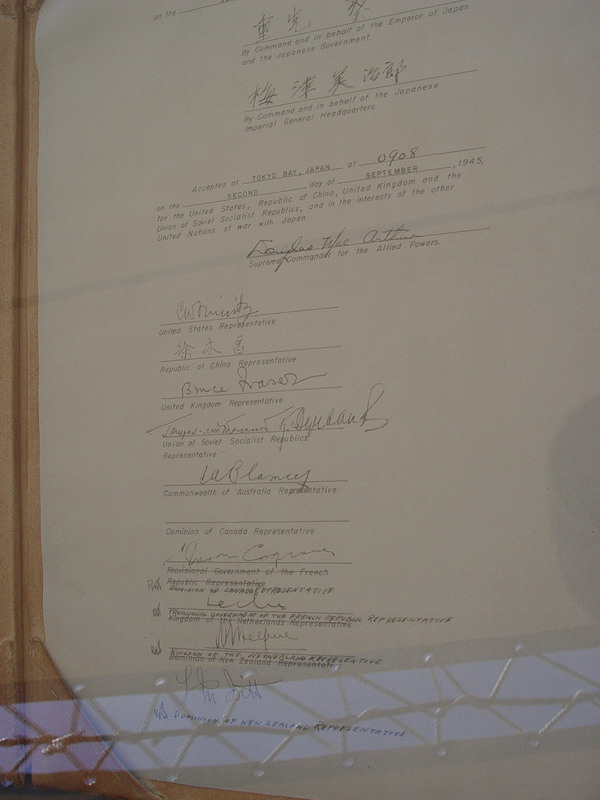 on the
重光 葵
By Command and in behalf of the Emperor of Japan
and the Japanese Government.
梅津美治郎
By Command and in behalf of the Japanese
Imperial General Headquarters.
Accepted at TOKYO BAY, JAPAN at 0908
on the SECOND day of SEPTEMBER, 1945,
for the United States, Republic of China, United Kingdom and the
Union of Soviet Socialist Republics, and in the interests of the other
United Nations at war with Japan.
Douglas MacArthur
Supreme Commander for the Allied Powers.
CW Nimitz
United States Representative
徐永昌
Republic of China Representative
Bruce Fraser
United Kingdom Representative
Union of Soviet Socialist Republics
Representative
T A Blamey
Commonwealth of Australia Representative
Dominion of Canada Representative
Moore Cosgrave
Provisional Government of the French
Republic Representative
DOMINION OF CANADA REPRESENTATIVE
Leclerc
PROVISIONAL GOVERNMENT OF THE FRENCH REPUBLIC REPRESENTATIVE
Kingdom of the Netherlands Representative
Helfrich
KINGDOM OF THE NETHERLAND REPRESENTIVE
Dominion of New Zealand Representative
DOMINION OF NEW ZEALAND REPRESENTATIVE